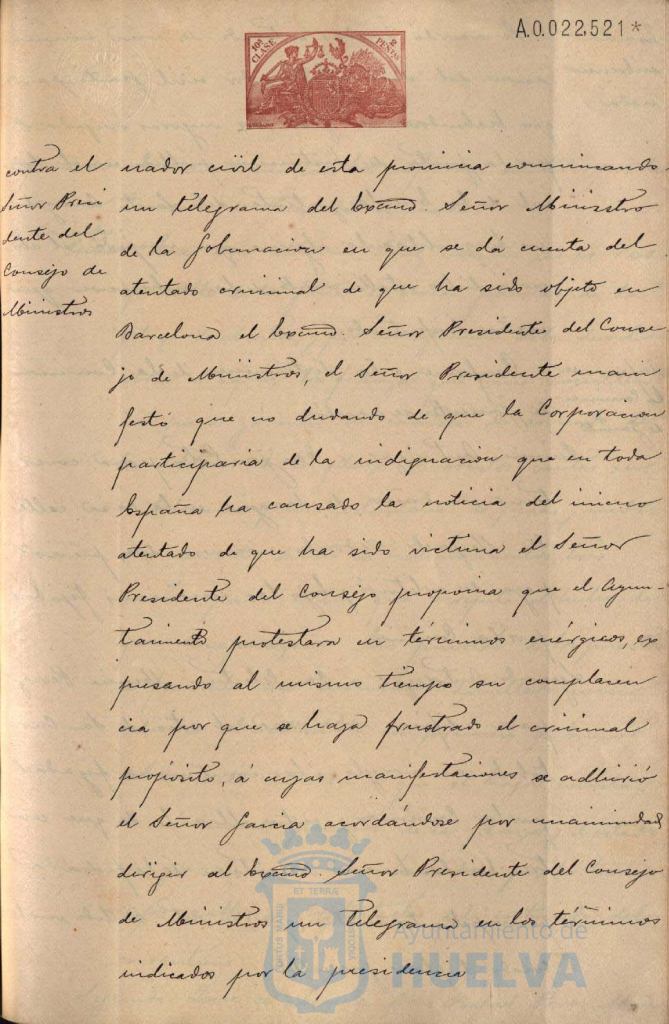 A.0.022,521*
10ª CLASE
2 PESETAS
contra el
Señor Presi
dente del
Consejo de
Ministros
nador civil de esta provincia comunicando
un telegrama del Excmo. Señor Ministro
de la Gobernacion en que se dá cuenta del
atentado criminal de que ha sido objeto en
Barcelona el Excmo. Señor Presidente del Conse
jo de Ministros, el Señor Presidente mani
festó que no dudando de que la Corporacion
participaria de la indignacion que en toda
España ha causado la noticia del inicuo
atentado de que ha sido victima el Señor
Presidente del Consejo proponia que el Ayun-
tamiento protestara en términos enérgicos, ex
presando al mismo tiempo su complacen
cia por que se haya frustrado el criminal
propósito, á cuyas manifestaciones se adhirió
el Señor Garcia acordándose por unanimidad
dirigir al Excmo. Señor Presidente del Consejo
de Ministros un telegrama en los términos
indicados por la presidencia
Ayuntamiento de
HUELVA